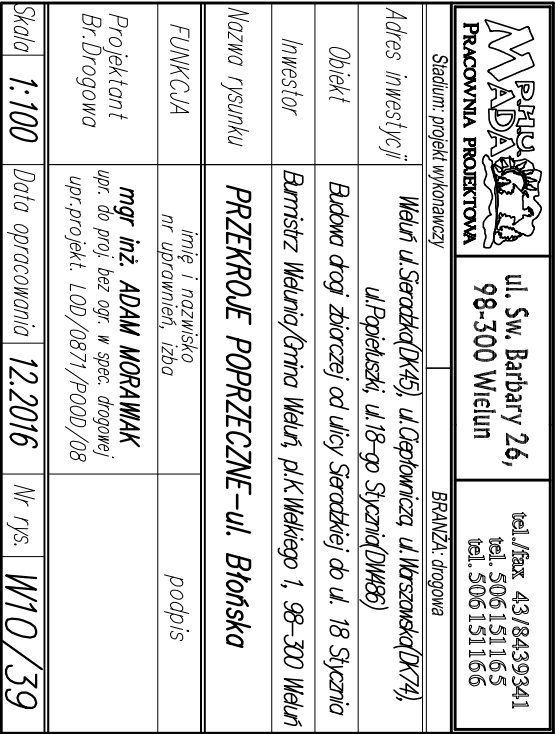 P.H.U.
MADA
PRACOWNIA PROJEKTOWA
ul. Sw. Barbary 26,
98-300 Wielun
tel./fax 43/8439341
tel. 506151165
tel. 506151166
Stadium: projekt wykonawczy
BRANŻA: drogowa
Adres inwestycji
Wieluń ul.Sieradzka(DK45), ul.Ciepłownicza, ul.Warszawska(DK74),
ul.Popiełuszki, ul.18-go Stycznia(DW486)
Obiekt
Budowa drogi zbiorczej od ulicy Sieradzkiej do ul. 18 Stycznia
Inwestor
Burmistrz Wielunia/Gmina Wieluń, pl.K.Wielkiego 1, 98-300 Wieluń
Nazwa rysunku
PRZEKROJE POPRZECZNE-ul. Błońska
FUNKCJA
imię i nazwisko
nr uprawnień, izba
podpis
Projektant
Br.Drogowa
mgr inż ADAM MORAWIAK
upr. do proj. bez ogr. w spec. drogowej
upr.projekt. LOD/0871/POOD/08
Skala
1:100
Data opracowania
12.2016
Nr rys.
W10/39